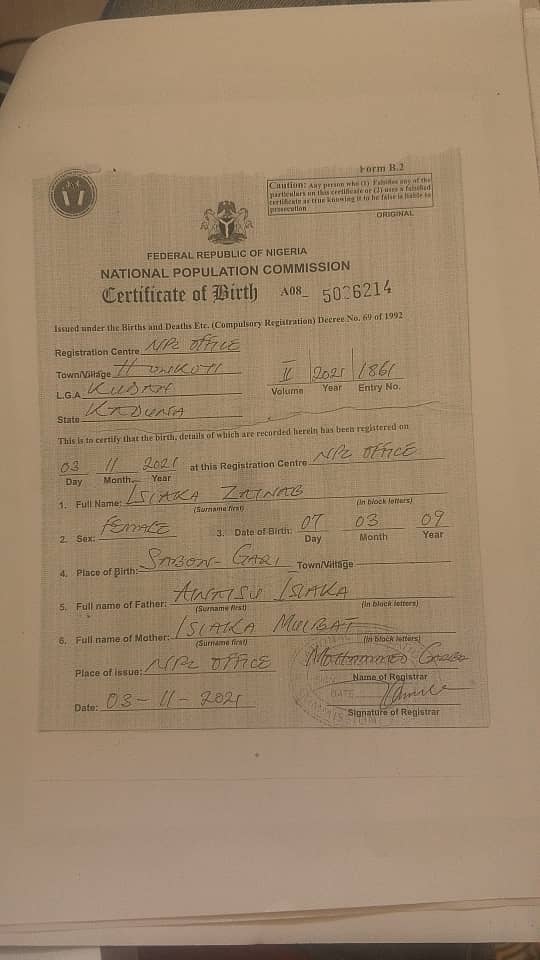 Form B.2
Caution: Any person who (1) Falsifies any of the
particulars on this certificate or (2) uses a falsified
certificate as true knowing it to be false is liable to
prosecution
ORIGINAL
FEDERAL REPUBLIC OF NIGERIA
NATIONAL POPULATION COMMISSION
Certificate of Birth A08_ 5036214
Issued under the Births and Deaths Etc. (Compulsory Registration) Decree No. 69 of 1992
Registration Centre NPC OFFICE
Town/Village
L.G.A KUBAU
II 2021 1861
Volume Year Entry No.
State KADUNA
This is to certify that the birth, details of which are recorded herein has been registered on
03 11 2021 at this Registration Centre NPC OFFICE
Day Month Year
1. Full Name: ISIAKA ZAINAB
(Surname first) (in block letters)
2. Sex: FEMALE 3. Date of Birth: 07 03 09
Day Month Year
4. Place of Birth: SABON-GARI Town/Village
5. Full name of Father: ISIAKA
(Surname first) (in block letters)
6. Full name of Mother: ISIAKA MULIBAT
(Surname first) (in block letters)
Place of issue: NPC OFFICE MOHAMMED
Name of Registrar
Date: 03-11-2021
Signature of Registrar
DATE